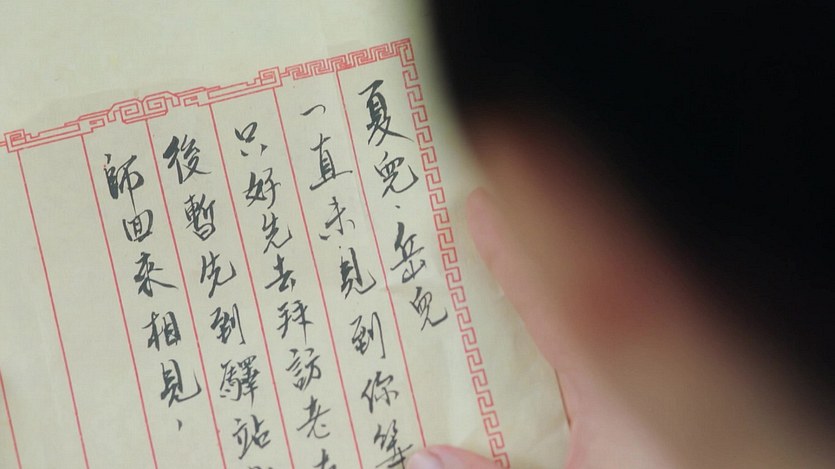 夏兒、岳兒
一直未見到你等
只好先去拜訪老
後暫先到驛站
師回來相見，